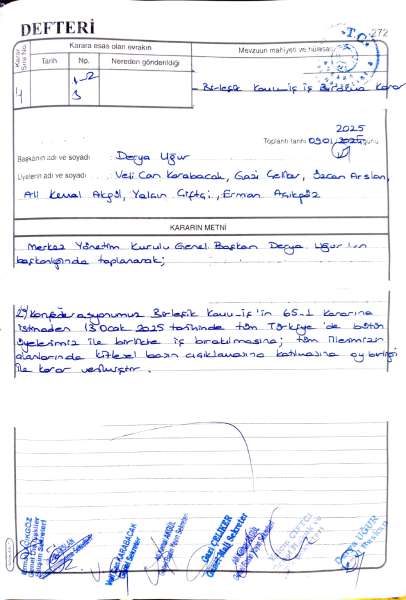 DEFTERİ
T.C.
272
Karar Sıra No.
Karara esas olan evrakın
Mevzuun mahiyeti ve hülasası
Tarih No. Nereden gönderildiği
4
1-2
3
Birleşik Kamu-iş iş Bırakma Kararı
2025
Toplantı tarihi 09.01.2025 günü
Başkanın adı ve soyadı : Derya Uğur
Üyelerin adı ve soyadı : Veli Can Karabacak, Gazi Çeliker, Özcan Arslan,
Ali Kemal Akgül, Yalçın Çiftçi, Erman Açıkgöz
KARARIN METNİ
Merkez Yönetim Kurulu Genel Başkan Derya Uğur'un
başkanlığında toplanarak;
Konfederasyonumuz Birleşik Kamu-iş'in 65-1 kararına
istinaden 13 Ocak 2025 tarihinde tüm Türkiye'de bütün
üyelerimiz ile birlikte iş bırakılmasına; tüm illerimizin
alanlarında kitlesel basın açıklamasına katılmasına oy birliği
ile karar verilmiştir.
Erman AÇIKGÖZ
ARSLAN
Veli Can KARABACAK
Ali Kemal AKGÜL
Gazi ÇELİKER
Genel Mali Sekreter
ÇİFTÇİ
Derya UĞUR